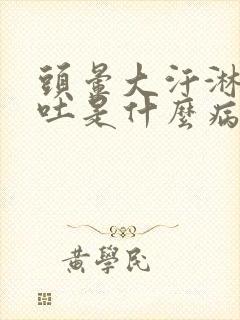 頭暈大汗淋
吐是什麼病
黃學民